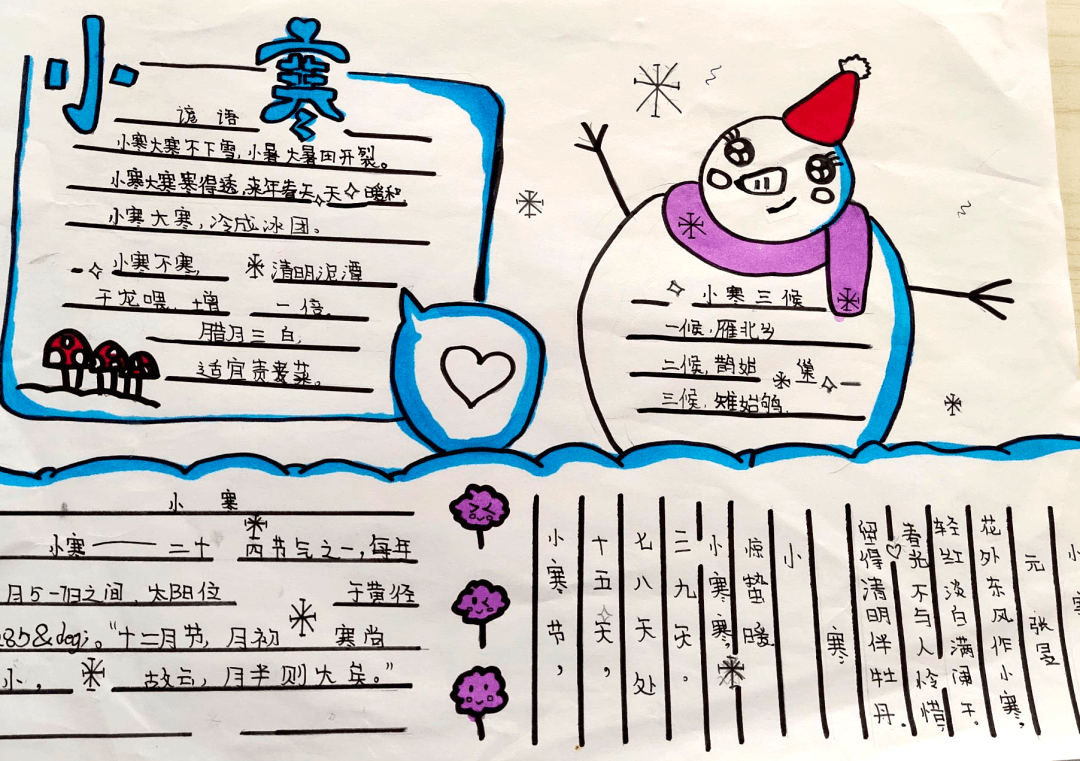 小寒
谚语
小寒大寒不下雪,小暑大暑田开裂。
小寒大寒寒得透,来年春天,天暖和
小寒大寒,冷成冰团。
小寒不寒, 清明泥潭
干龙喂,增一倍,
腊月三白,
适宜责麦菜。
小寒三候
一候,雁北乡
二候,鹊始巢
三候,雉始鸲.
小寒
小寒——二十四节气之一,每年
月5-7日之间,太阳位于黄径
285&deg;。"十二月节,月初寒尚
小,故云,月半则大矣。"
小寒节,
十五天,
七八天处
三九天。
小寒寒,
惊蛰暖
小寒
小寒
元 张昱
花外东风作小寒,
轻红淡白满阑干.
春光不与人怜惜,
留得清明伴牡丹.